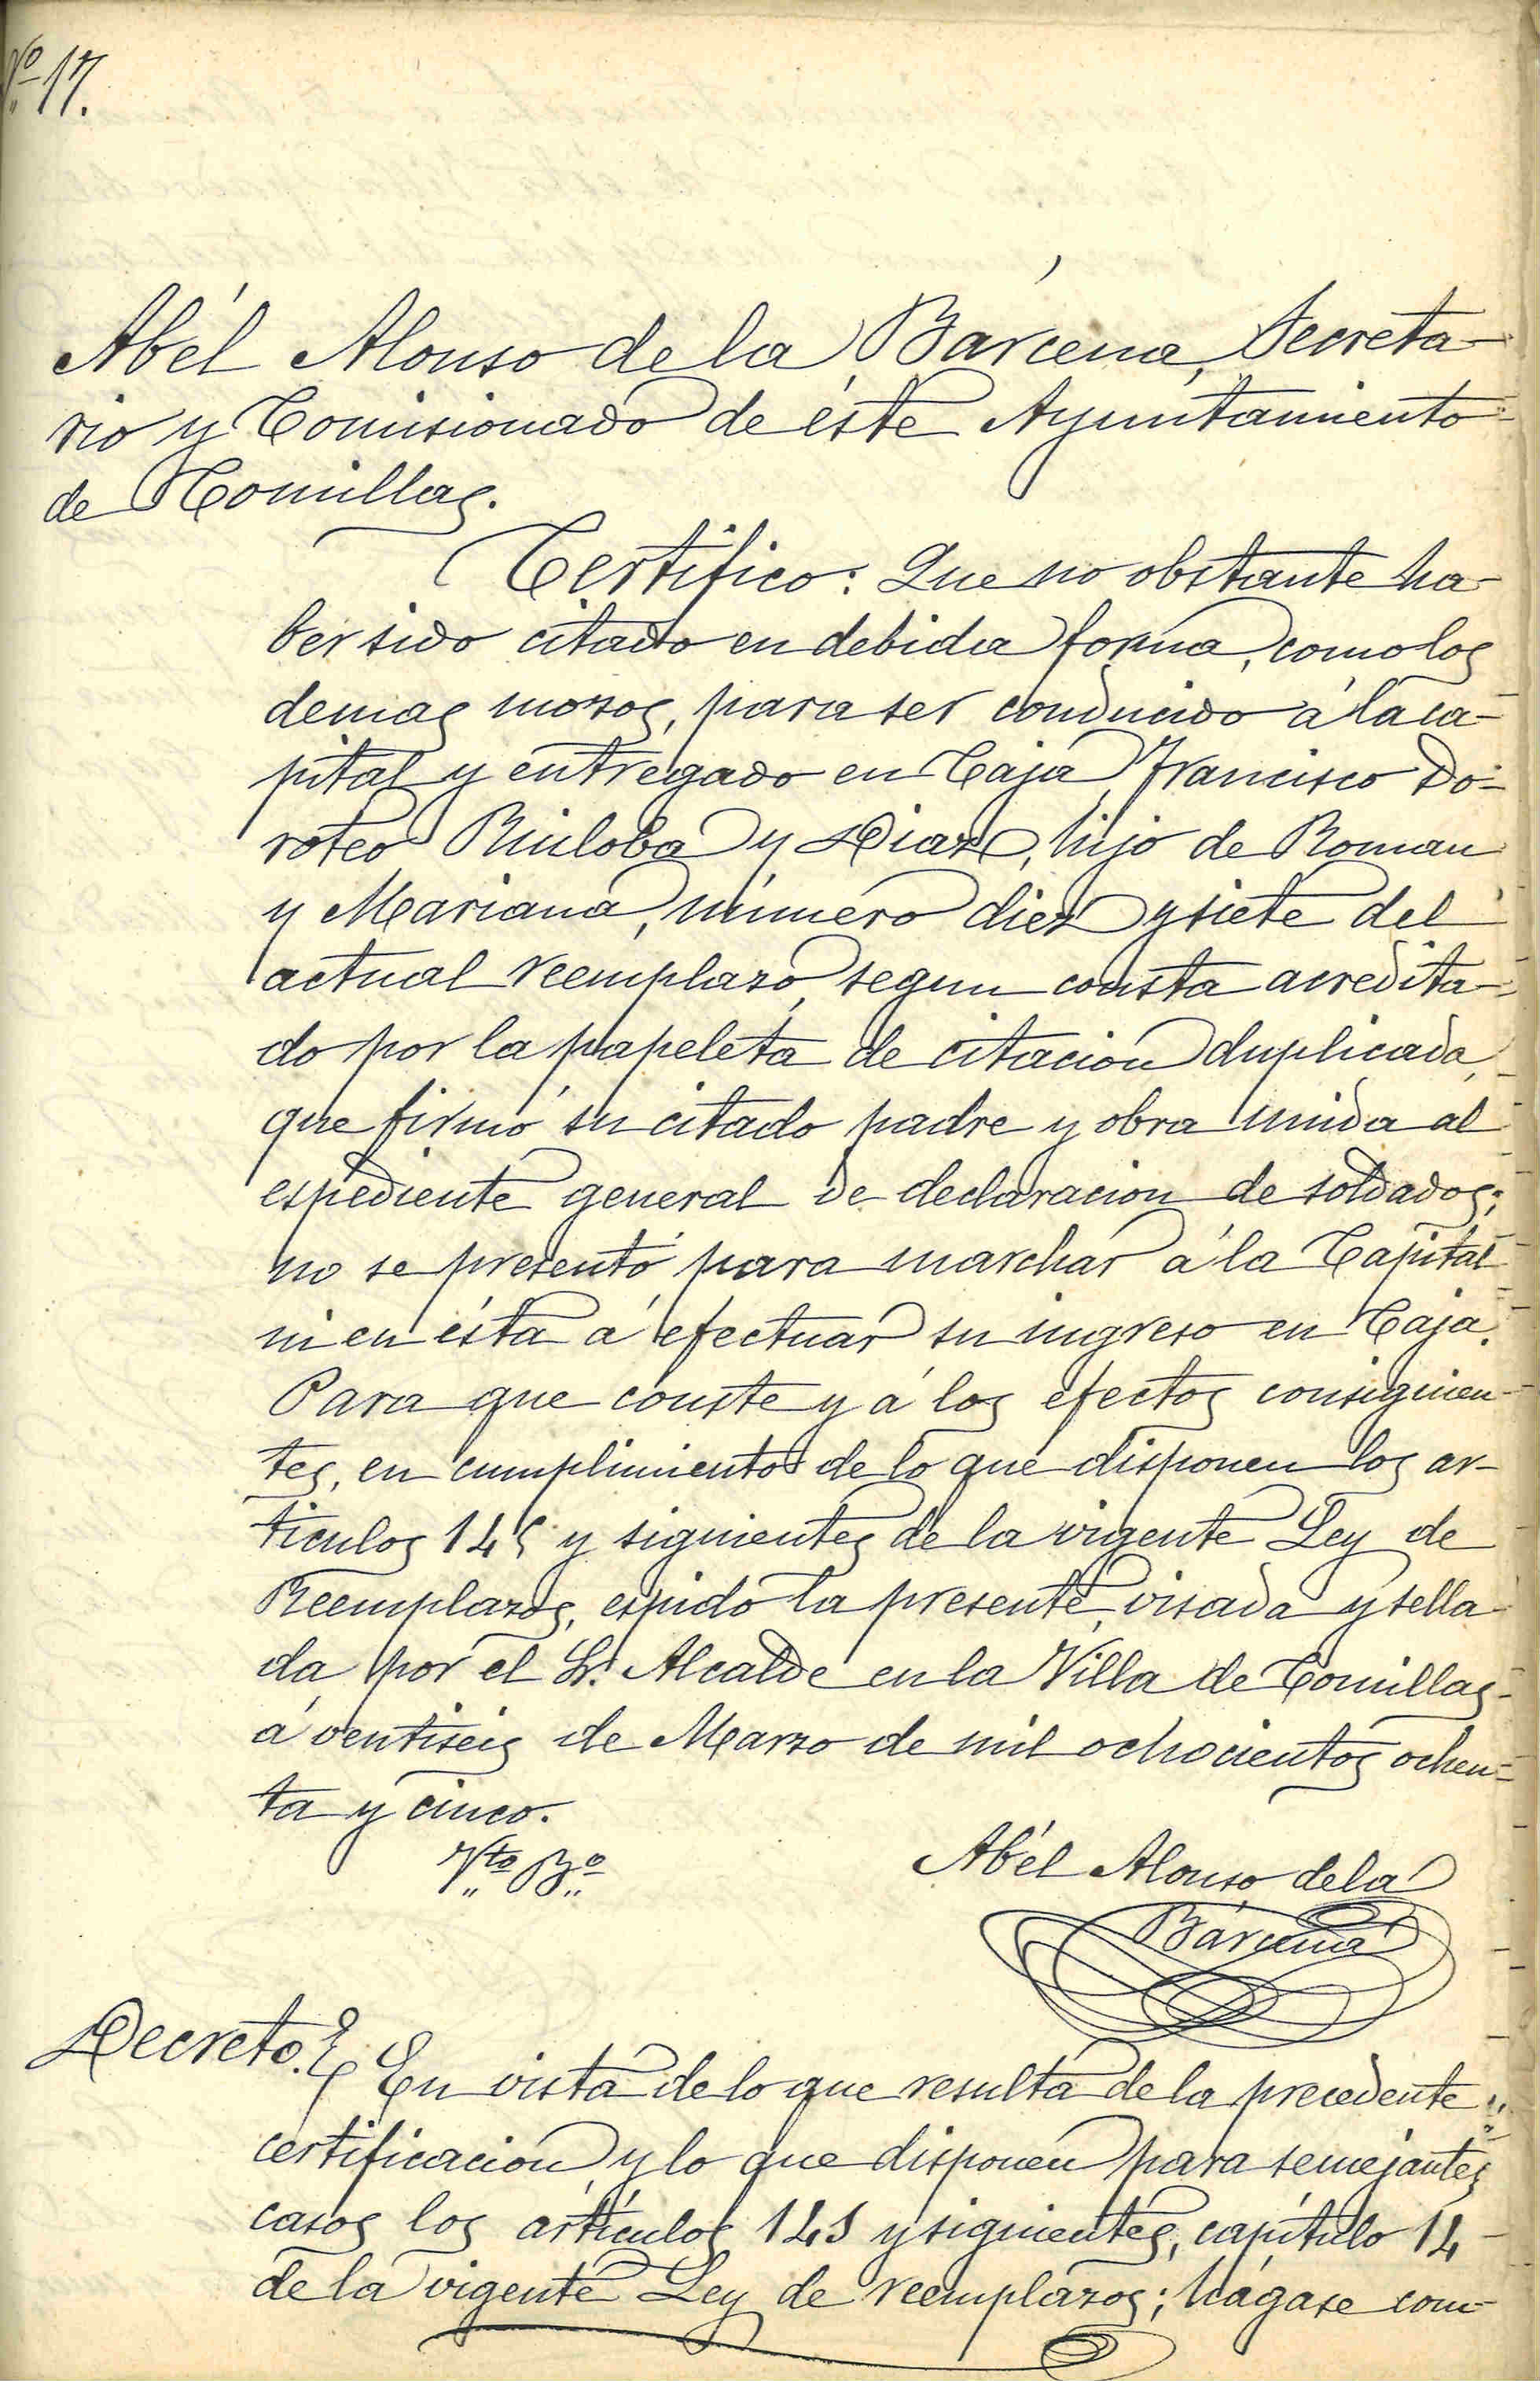 Nº 17.
Abél Alonso de la Bárcena, Secreta-
rio y Comisionado de éste Ayuntamiento
de Comillas.
Certifico: Que no obstante ha-
ber sido citado en debida forma, como los
demas mozos, para ser conducido á la ca-
pital y entregado en Caja, Francisco Do-
roteo Ruiloba y Diaz, hijo de Roman
y Mariana, número diez y siete del
actual reemplazo, segun consta acredita-
do por la papeleta de citacion duplicada,
que firmó su citado padre y obra unida al
espediente general de declaracion de soldados;
no se presentó para marchar á la Capital
ni en ésta á efectuar su ingreso en Caja.
Para que conste y á los efectos consiguien-
tes, en cumplimiento de lo que disponen los ar-
ticulos 145 y siguientes de la vigente Ley de
Reemplazos, espido la presente, visada y sella-
da por el Sr. Alcalde en la Villa de Comillas
á ventiseis de Marzo de mil ochocientos ochen-
ta y cinco.
Vto Bº
Abél Alonso de la
Bárcena
Decreto.
En vista de lo que resulta de la precedente
certificacion y lo que disponen para semejantes
casos los artículos 145 y siguientes, capítulo 14
de la vigente Ley de reemplazos; hágase com-